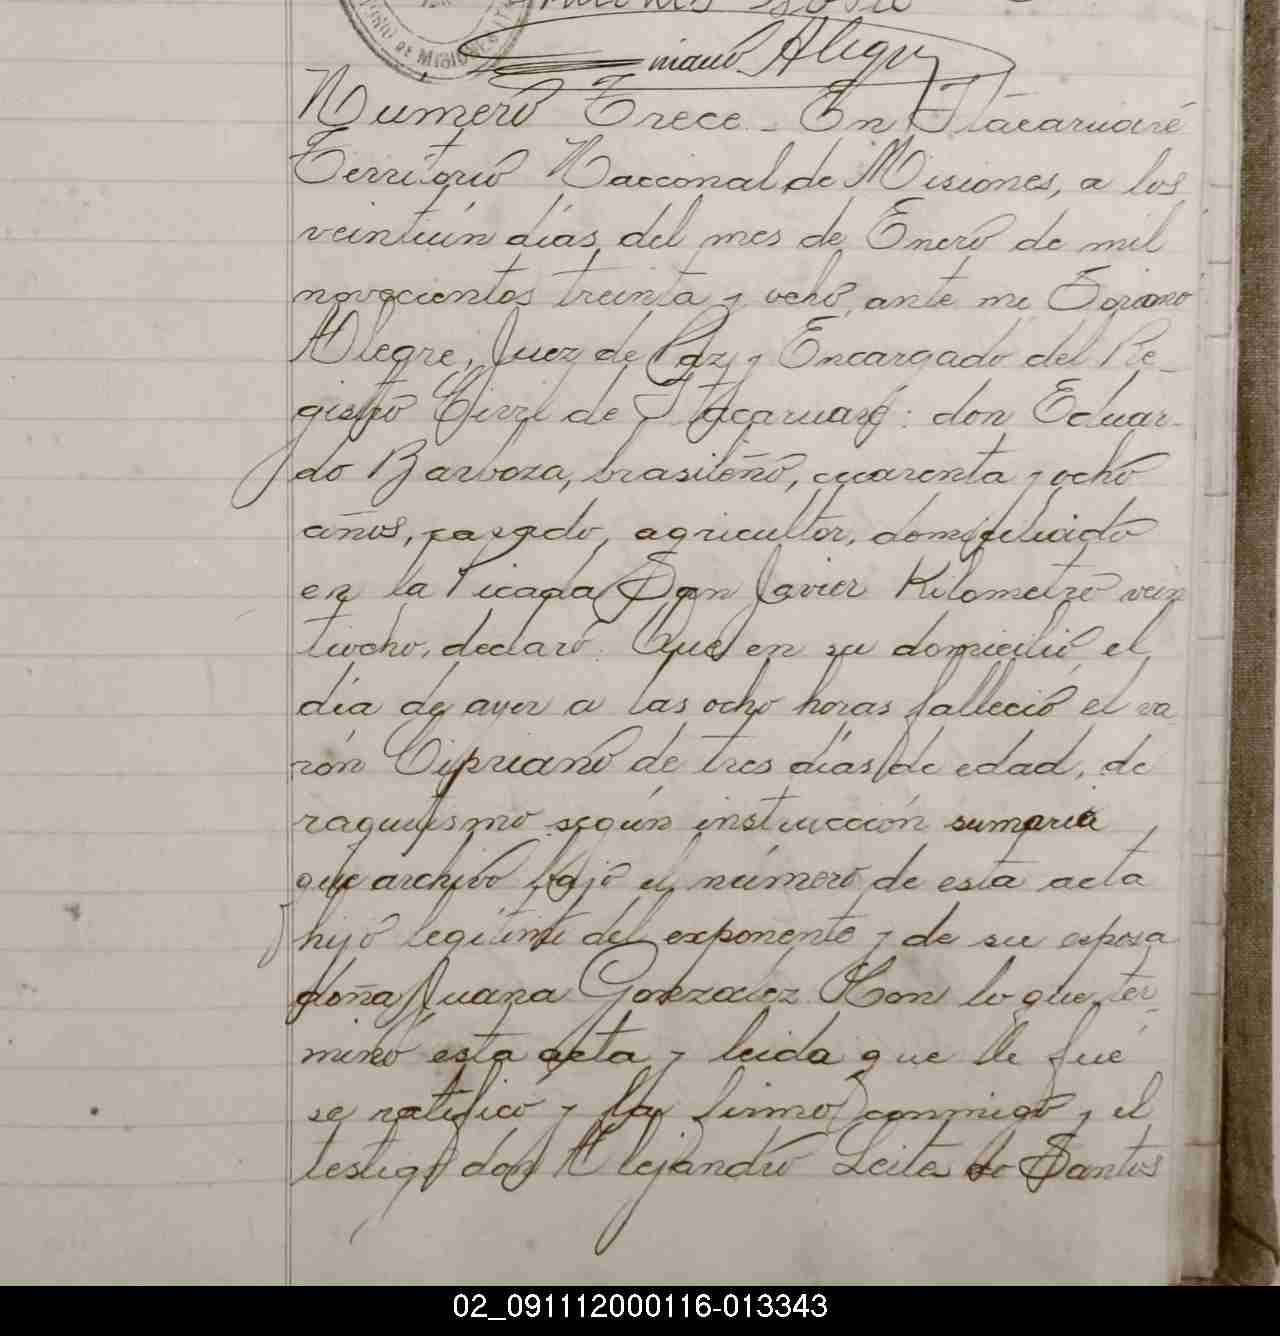 Alegre
Número Trece. En Itacaruaré
Territorio Nacional de Misiones, a los
veintiún días del mes de Enero de mil
novecientos treinta y ocho, ante mi
Alegre, Juez de Paz y Encargado del Re-
gistro Civil de Itacaruaré: don Eduar-
do Barboza, brasileño, cuarenta y ocho
años, casado, agricultor, domiciliado
en la Picada San Javier Kilometro vein
tiocho, declaró: Que en su domicilio el
día de ayer a las ocho horas falleció el va
rón Cipriano de tres días de edad, de
raquitismo según instrucción sumaria
que archivo bajo el número de esta acta
hijo legitimo del exponente y de su esposa
doña Juana Gonzalez. Con lo que ter-
minó esta acta y leida que le fué
se ratificó y la firmó conmigo y el
testigo don Alejandro Leite do Santos
02_091112000116-013343